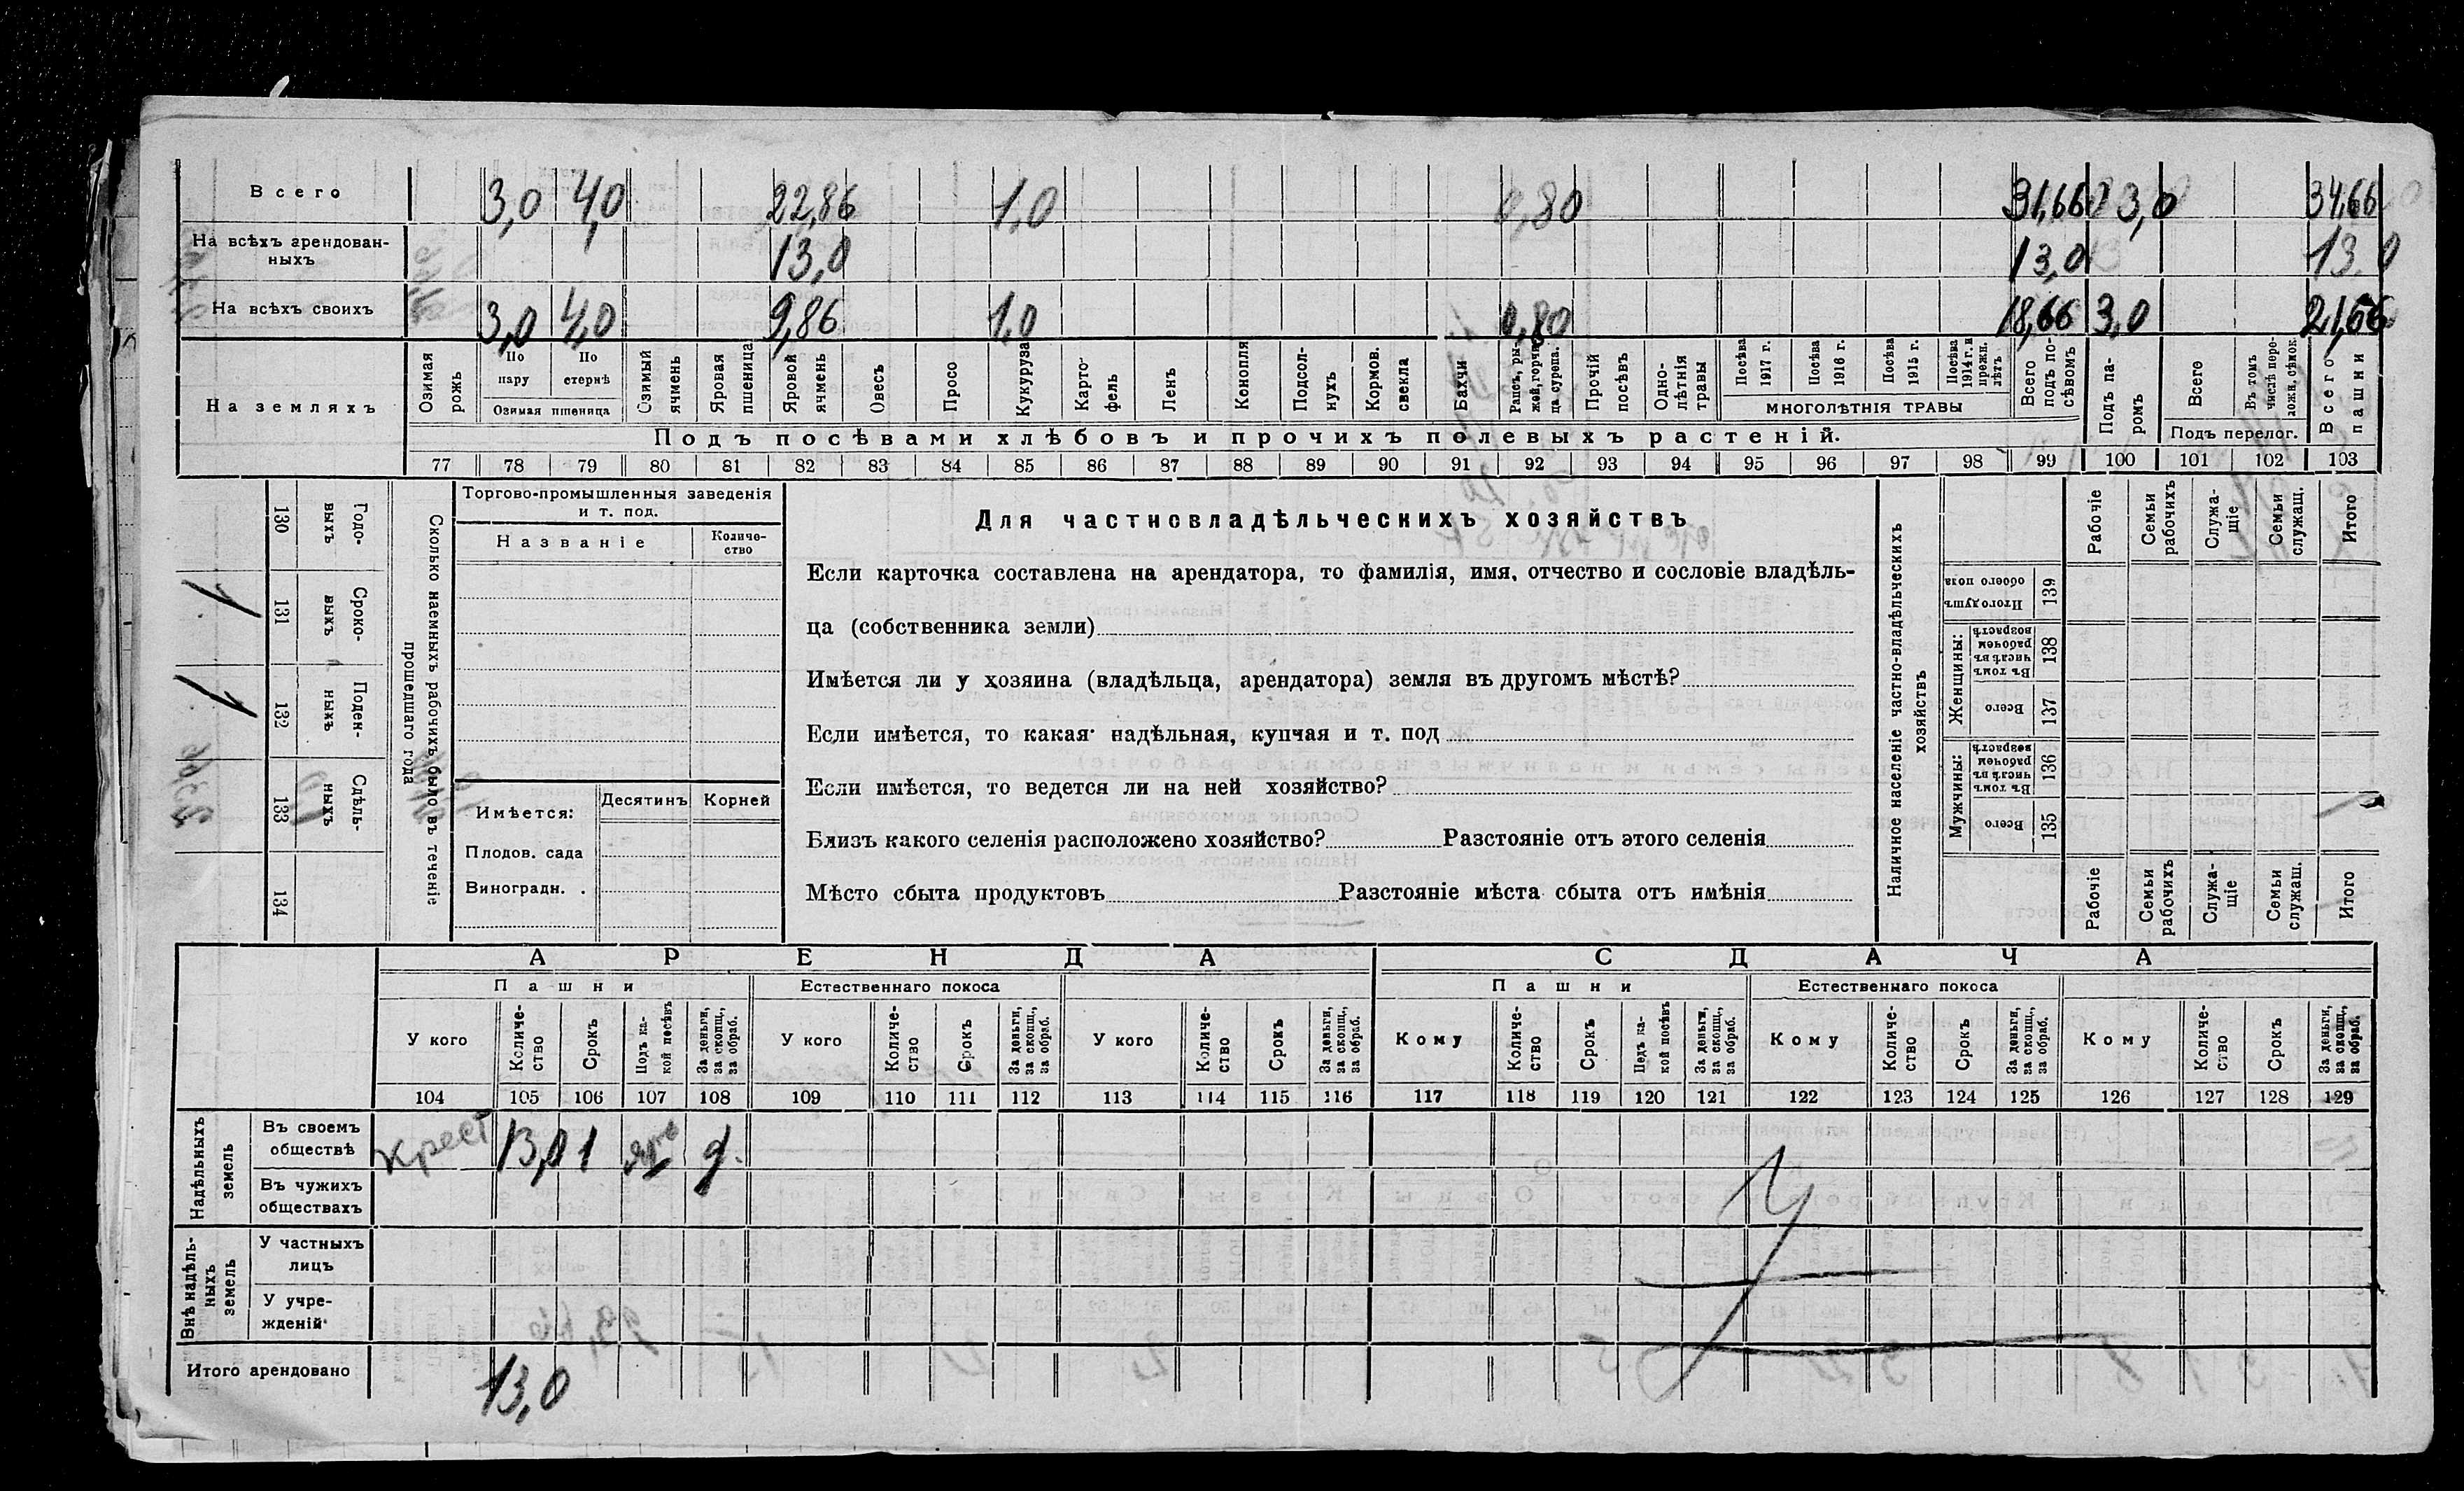 Всего 3,0 4,0 22,86 1,0 0,80 31,66 3,0 34,66
На всѣхъ арендован-
ныхъ 13,0 13,0 13,0
На всѣхъ своихъ 3,0 4,0 9,86 1,0 0,80 18,66 3,0 21,66
На земляхъ
Озимая рожь
По пару
По стернѣ
Озимая пшеница
Озимый ячмень
Яровая пшеница
Яровой ячмень
Овесъ
Просо
Кукуруза
Карто-
фель
Ленъ
Конопля
Подсол-
нухъ
Кормов. свекла
Бахчи
Рапсъ, ры-
жей, горчи-
ца сурепа.
Прочій посѣвъ
Одно-
лѣтнія травы
Посѣва 1917 г.
Посѣва 1916 г.
Посѣва 1915 г.
Посѣва 1914 г. и прежн. лѣтъ
МНОГОЛѢТНІЯ ТРАВЫ
Всего подъ по-
сѣвомъ
Подъ па-
ромъ
Всего
Въ томъ числѣ пере-
ложн. сѣнок.
Подъ перелог.
Всего пашни
Подъ посѣвами хлѣбовъ и прочихъ полевыхъ растеній.
77 78 79 80 81 82 83 84 85 86 87 88 89 90 91 92 93 94 95 96 97 98 99 100 101 102 103
130 Годо-
выхъ
131 Сроко-
выхъ
132 Поден-
ныхъ
133 Сдѣль-
ныхъ
134
1
1
Сколько наемныхъ рабочихъ было въ теченіе
прошедшаго года
Торгово-промышленныя заведенія
и т. под.
Названіе
Количе-
ство
Имѣется:
Десятинъ
Корней
Плодов. сада
Виноградн. .
Для частновладѣльческихъ хозяйствъ
Если карточка составлена на арендатора, то фамилія, имя, отчество и сословіе владѣль-
ца (собственника земли)
Имѣется ли у хозяина (владѣльца, арендатора) земля въ другомъ мѣстѣ?
Если имѣется, то какая надѣльная, купчая и т. под
Если имѣется, то ведется ли на ней хозяйство?
Близъ какого селенія расположено хозяйство? Разстояніе отъ этого селенія
Мѣсто сбыта продуктовъ Разстояніе мѣста сбыта отъ имѣнія
Наличное населеніе частно-владѣльческихъ
хозяйствъ
Рабочіе
Семьи рабочихъ
Служа-
щіе
Семьи служащ.
Итого
Итого душъ обоего пола 139
Женщины:
Въ томъ числѣ въ рабочемъ возрастѣ 138
Всего 137
Мужчины:
Въ томъ числѣ въ рабочемъ возрастѣ 136
Всего 135
Рабочіе
Семьи рабочихъ
Служа-
щіе
Семьи служащ.
Итого
АРЕНДА СДАЧА
Пашни Естественнаго покоса Пашни Естественнаго покоса
У кого
Количе-
ство
Срокъ
Подъ ка-
кой посѣвъ
За деньги, за скопщ., за обраб.
У кого
Количе-
ство
Срокъ
За деньги, за скопщ., за обраб.
У кого
Количе-
ство
Срокъ
За деньги, за скопщ., за обраб.
Кому
Количе-
ство
Срокъ
Подъ ка-
кой посѣвъ
За деньги, за скопщ., за обраб.
Кому
Количе-
ство
Срокъ
За деньги, за скопщ., за обраб.
Кому
Количе-
ство
Срокъ
За деньги, за скопщ., за обраб.
104 105 106 107 108 109 110 111 112 113 114 115 116 117 118 119 120 121 122 123 124 125 126 127 128 129
Надѣльныхъ
земель
Въ своемъ
обществѣ Крест 13,0 1 д.
Въ чужихъ
обществахъ
Внѣ надѣль-
ныхъ
земель
У частныхъ
лицъ
У учре-
жденій
Итого арендовано 13,0